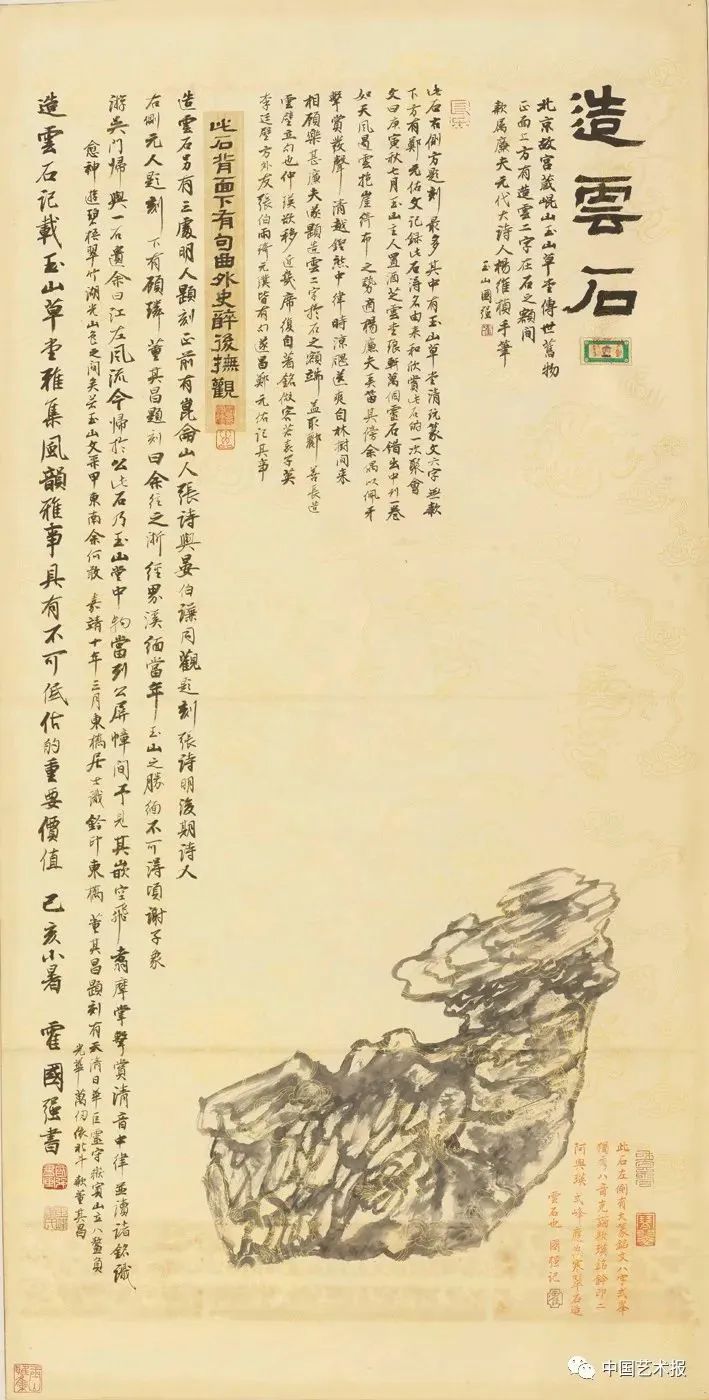 造雲石
北京故宮藏崐山玉山草堂傳世舊物
正面上方有造雲二字在石之額間
款属廉夫元代大詩人楊維楨手筆
玉山國强
此石右側方題刻最多其中有玉山草堂清玩篆文六字無款
下方有鄭元佑文記録此石得名由来和欣賞此石的一次聚會
文曰庚寅秋七月玉山主人置酒芝雲堂琅
萬個靈石錯出中刊一卷
如天風曷雲抱崖倚布之勢適楊廉夫吴笛具傍余偶以佩牙
擊賞發聲清越鏗然中律時涼飔送爽自林樹间来
相顧樂甚廉夫遂顥造雲二字於石之额端蓋取
善長造
雲壁立句也仲瑛欲移近几席復自著銘
客若
英
李廷璧方外友張伯雨倚元漢皆有句遂昌鄭元佑记其事
此石背面下有句曲外史醉後撫觀
造雲石另有三處明人題刻正前有崑侖山人張詩與晏伯謙同觀題刻張詩明後期詩人
右側元人題刻下有顧璘董其昌題刻曰余往之浙經界溪緬當年玉山之勝緬不可得頃謝子象
游吴门歸與一石遺余曰江左風流今歸於公此石乃玉山堂中物當列公屏幛间予見其嵌空飛翥摩掌擊賞清音中律並讀诸銘識
愈神遊碧梧翠竹湖光山色之间矣若玉山文采甲東南余何敢嘉靖十年三月東橋居士識鈐印東橋董其昌題刻有天清日華巨靈守嶽賓山立八鰲負
光華萬仞依北斗款董其昌
造雲石記載玉山草堂雅集風韻雅事具有不可低估的重要價值己亥小暑霍國强書
此石左側有大篆銘文八字弍峯
獨秀八音克諧款瑛詺鈐印二
阿興瑛弍峰應為寒翠石造
雲石也國强记
中国艺术报